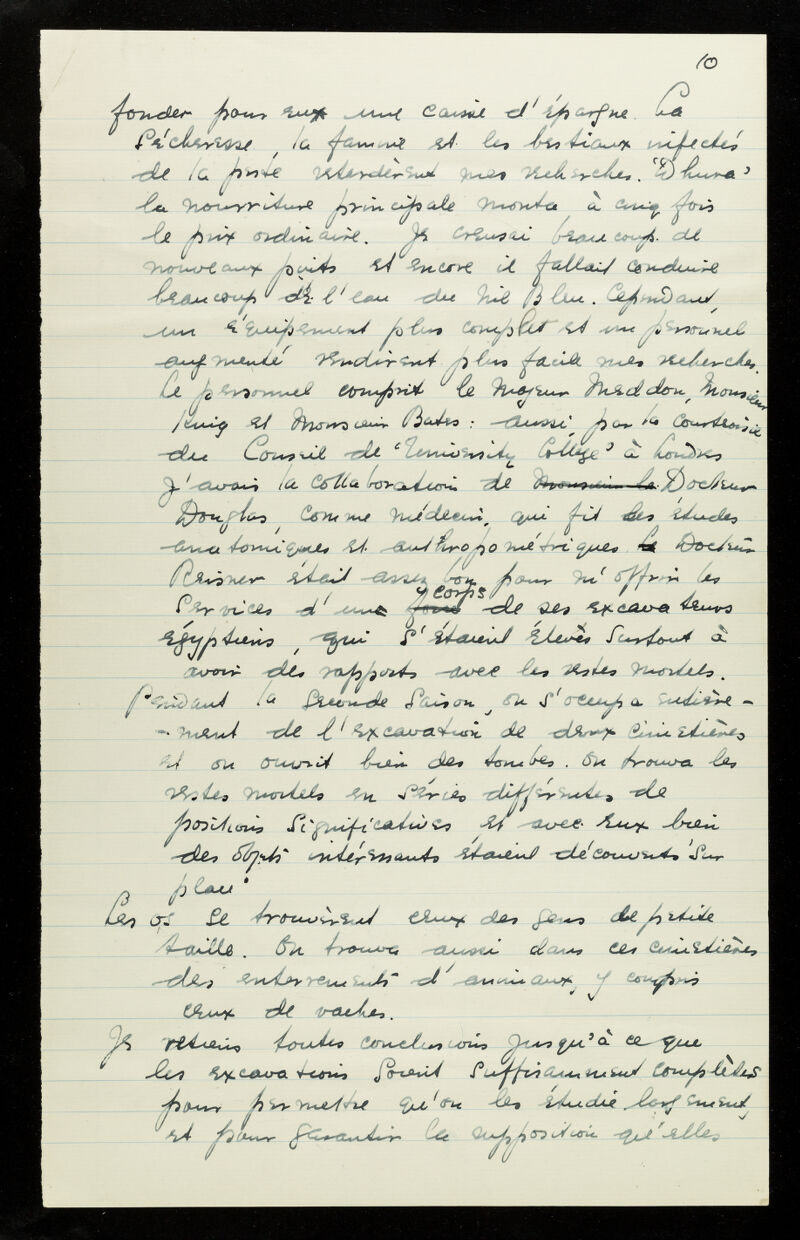 10
fonder pour eux une caisse d'épargne. La
Sécheresse, la famine et les bestiaux infectés
de la peste retardèrent mes recherches. "Dhura"
la nourriture principale monta à cinq fois
le prix ordinaire. Je creusai beaucoup de
nouveaux puits et encore il fallait conduire
beaucoup de l'eau du Nil Bleu. Cependant,
un équipement plus complet et un personnel
augmenté rendirent plus facile mes recherches.
Le personnel comprit le Majeur Meddon, Monsieur
King et Monsieur Bates: aussi, par la courtoisie
du Conseil de "University College" à Londres
j'avais la collaboration de Monsieur le Docteur
Douglas, comme médecin, qui fit des études
anatomiques et anthropométriques le Docteur
Reisner était assez bon pour m'offrir les
Services d'une corps de ses excavateurs
égyptiens, qui s'étaient élevés surtout à
avoir des rapports avec les restes mortels.
Pendant la Seconde Saison, on s'occupa entière-
-ment de l'excavation de deux cimetières
et on ouvrit bien des tombes. On trouva les
restes mortels en Séries différentes de
positions Significatives, et avec eux bien
des objets intéressants étaient découverts "sur
place"
Les os se trouvèrent ceux des gens de petite
taille. On trouva aussi dans ces cimetières
des enterrements d'animaux, y compris
ceux de vaches.
Je retiens toutes conclusions jusqu'à ce que
les excavations Soient Suffisamment complètes
pour permettre qu'on les étudie largement,
et pour garantir la supposition qu'elles